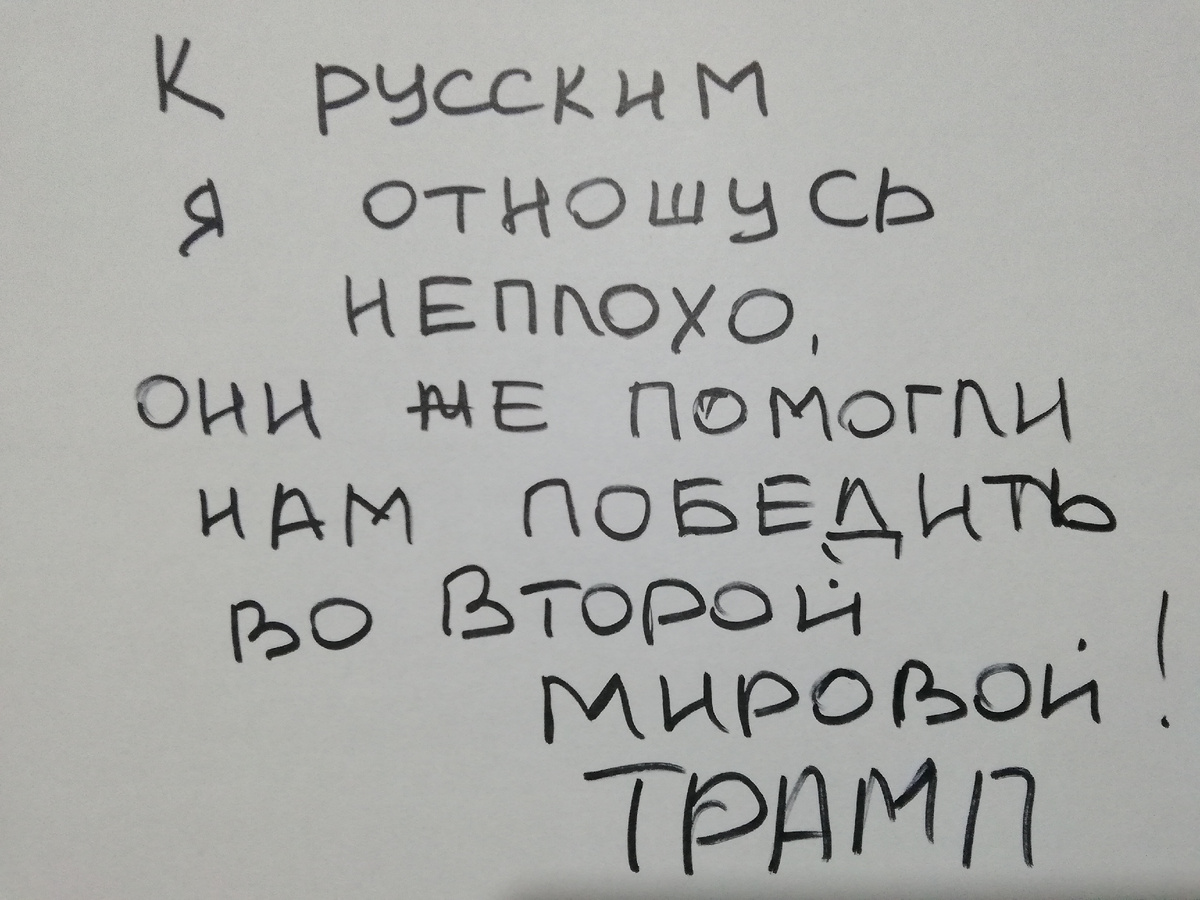 К РУССКИМ
Я ОТНОШУСЬ
НЕПЛОХО,
ОНИ ЖЕ ПОМОГЛИ
НАМ ПОБЕДИТЬ
ВО ВТОРОЙ
МИРОВОЙ!
ТРАМП